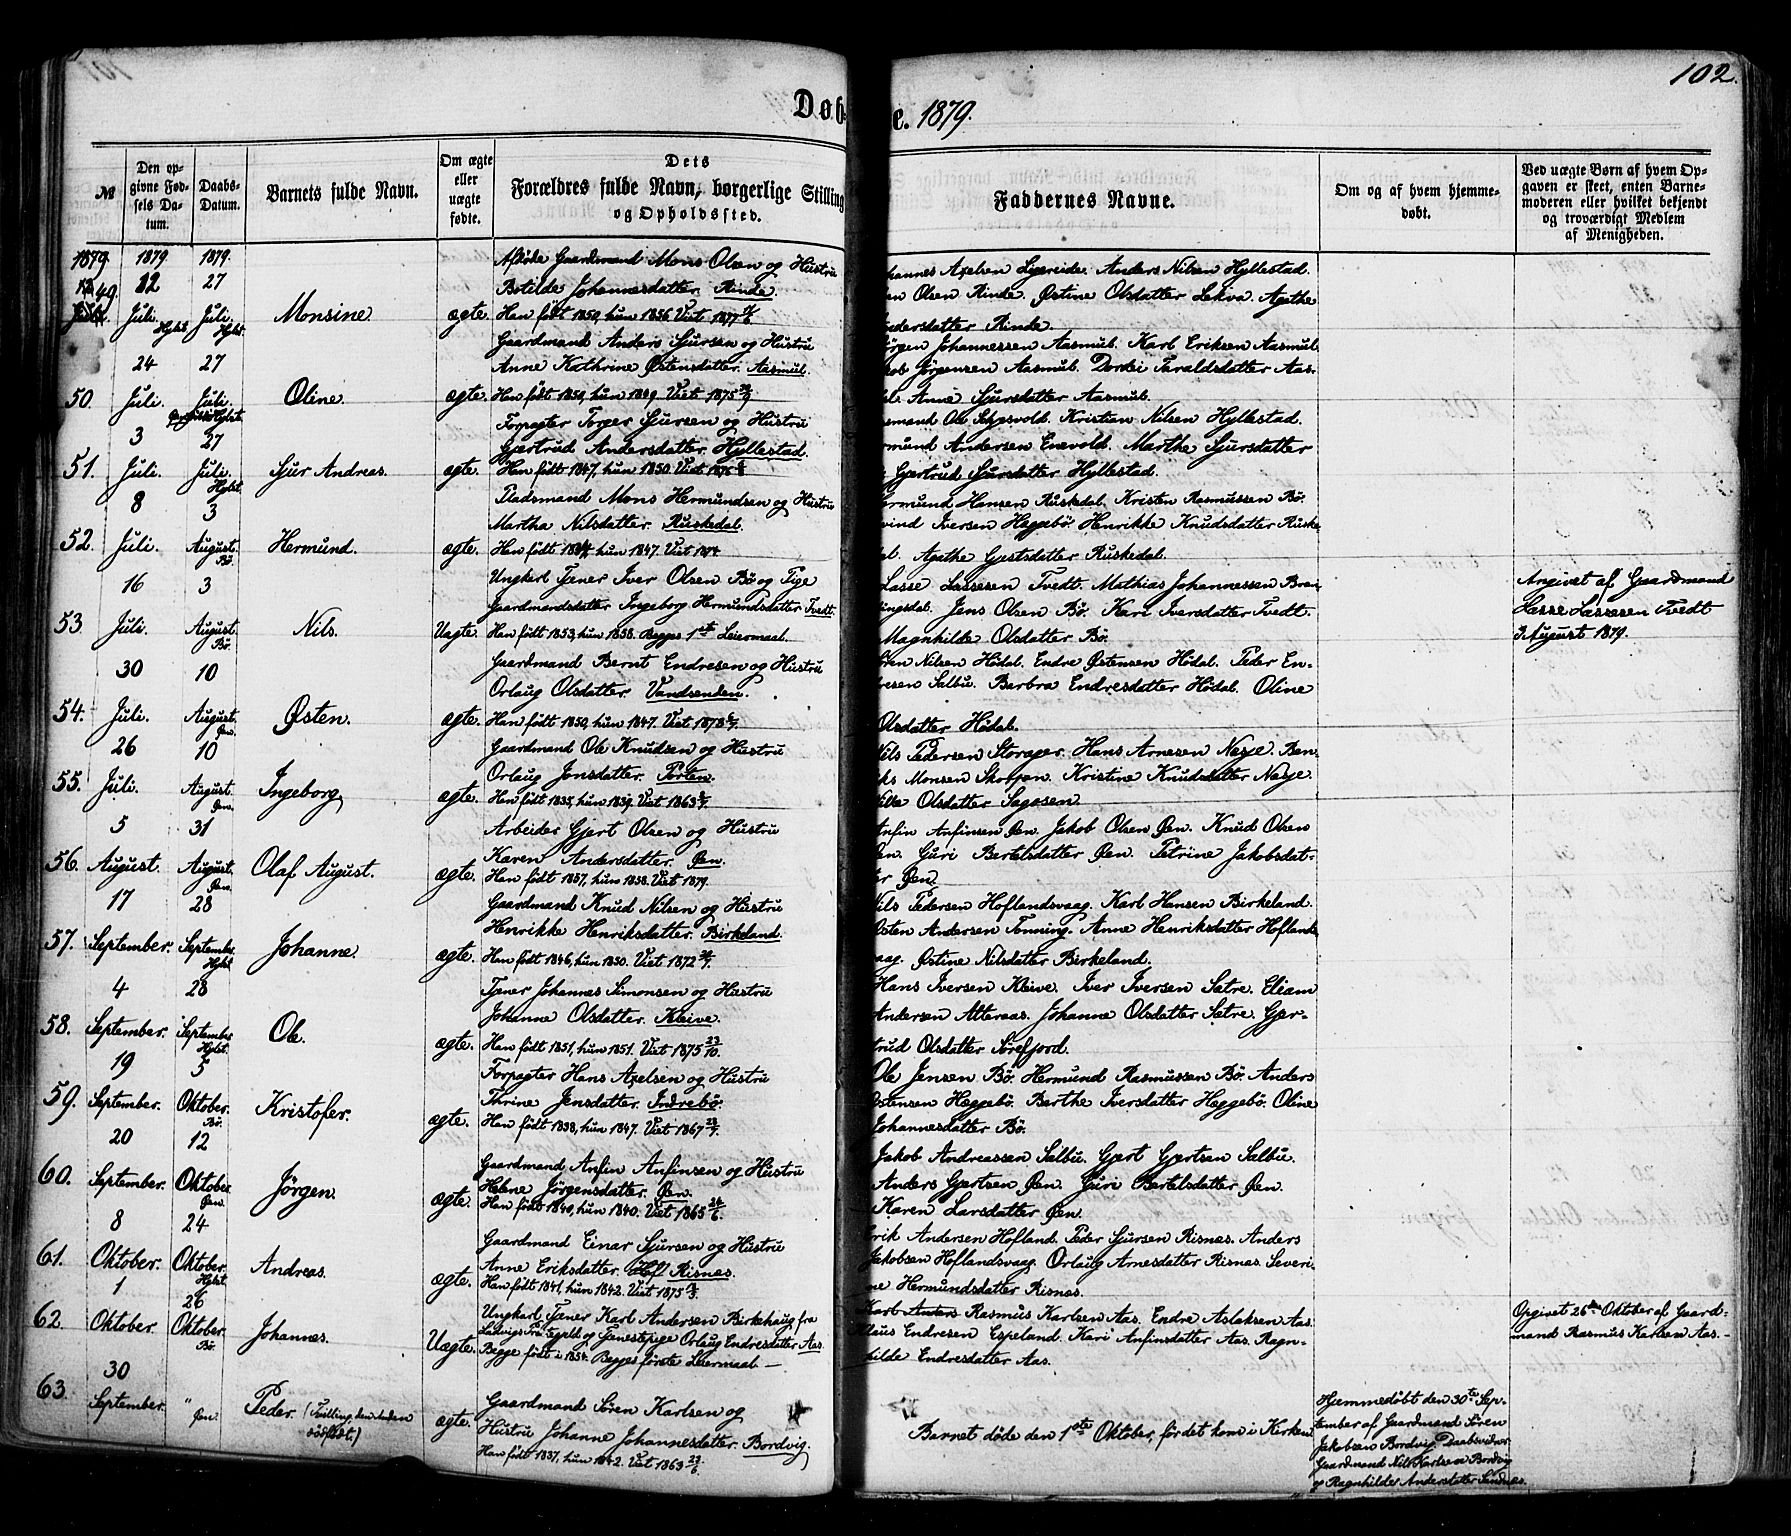 102.
Døbte. 1879.
№
Den opgivne Fødsels Datum.
Daabs-Datum.
Barnets fulde Navn.
Om ægte eller uægte fødte.
Dets
Forældres fulde Navn, borgerlige Stilling
og Opholdssted.
Faddernes Navne.
Om og af hvem hjemmedøbt.
Ved uægte Børn af hvem Opgaven er skeet, enten Barnemoderen eller hvilket bekjendt og troværdigt Medlem af Menigheden.
1879 1879 1879.
49. 12 Juli. 27 Juli. Hylst. Monsine. ægte.
Afdøde Gaardmand Mons Olsen og Hustru
Botilde Johannesdatter. Rinde.
Han født 1850, hun 1856. Viet 1877
hannes Axelsen Ligereide. Anders Nilsen Hyllestad.
an Olsen Rinde. Østine Olsdatter Lekva. Agathe
ndersdatter Rinde.
50. 24 Juli. 27 Juli. Hylst. Oline. ægte.
Gaardmand Anders Sjursen og Hustru
Anne Kathrine Østensdatter. Aasmul.
Han født 1850, hun 1889. Viet 1875
ørgen Johannessen Aasmul. Karl Eriksen Aasmul
kob Jørgensen Aasmul. Dordei Taraldsdatter Aas-
l. Anne Sjursdatter Aasmul.
51. 3 Juli. 27 Juli. Hylst. Sjur Andreas. ægte.
Forpagter Torger Sjursen og Hustru
Gjertrud Andersdatter. Hyllestad.
Han født 1847, hun 1850. Viet
emand Ole Kristian Nilsen Hyllestad.
rmund Andersen Enevold. Marthe Sjursdatter
Gjertrud Sjursdatter Hyllestad.
52. 8 Juli. 3 August. Bø. Hermund. ægte.
Pladsmand Mons Hermundsen og Hustru
Martha Nilsdatter. Ruskedal.
Han født hun 1847. Viet 1874
ermund Hansen Ruskedal. Kristen Rasmussen Bø.
vind Iversen Heggebø. Henrikke Knudsdatter Ruske
al. Agathe Gjertsdatter Ruskedal.
53. 16 Juli. 3 August. Bø. Nils. Uægte.
Ungkarl Tjener Iver Olsen Bø og Pige
Gaardmandsdatter Ingeborg Hermundsdatter Tvedt.
Han født 1853, hun 1858. Begges 1ste Leiermaal.
Lasse Lassesen Tvedt. Mathias Johannessen Bræ-
Jens Olsen Bø. Kari Iversdatter Tvedt.
Magnhilde Olsdatter Bø.
Angivet af Gaardmand
Lasse Lassesen Tvedt
3 August 1879.
54. 30 Juli. 10 August. Øen. Østen. ægte.
Gaardmand Bernt Endresen og Hustru
Orlaug Olsdatter. Vandsenden.
Han født 1850, hun 1847. Viet 1878
ren Nilsen Hødal. Endre Østensen Hødal. Peder En-
resen Salbu. Barbra Endresdatter Hødal. Oline
Olsdatter Hødal.
55. 26 Juli. 10 August. Øen. Ingeborg. ægte.
Gaardmand Ole Knudsen og Hustru
Orlaug Jonsdatter. Porten.
Han født 1835, hun 1839. Viet 1863
Nils Pedersen Storager. Hans Arnesen Nesje. Ben-
iks Monsen Skolpen. Kristine Knudsdatter Nesje.
Nille Olsdatter Sagosen.
56. 5 August. 31 August. Øen. Olaf August. ægte.
Arbeider Gjert Olsen og Hustru
Karen Andersdatter. Øen.
Han født 1857, hun 1858. Viet 1879.
Anfin Anfinsen Øen. Jakob Olsen Øen. Knud Olsen
Øen. Guri Bertelsdatter Øen. Petrine Jakobsdat-
ter Øen.
57. 17 September. 28 September. Hylst. Johanne. ægte.
Gaardmand Knud Nilsen og Hustru
Henrikke Henriksdatter. Birkeland.
Han født 1846, hun 1850. Viet 1872
Nils Pedersen Hoflandsvaag. Karl Hansen Birkeland.
Østen Andersen Tonning. Anne Henriksdatter Hoflands
aag. Østine Nilsdatter Birkeland.
58. 4 September. 28 September. Hylst. Ole. ægte.
Tjener Johannes Simonsen og Hustru
Johanne Olsdatter. Kleive.
Han født 1851, hun 1851. Viet 1875 23/10.
Hans Iversen Kleive. Iver Iversen Sætre. Eliam
Andersen Atteraas. Johanne Olsdatter Sætre. Gjer-
trud Olsdatter Sørefjord.
59. 19 September. 5 Oktober. Bø. Kristofer. ægte.
Forpagter Hans Axelsen og Hustru
Thrine Jensdatter. Indrebø.
Han født 1838, hun 1847. Viet 1867 23/7.
Ole Jensen Bø. Hermund Rasmussen Bø. Anders
Ostensen Heggebø. Berthe Iversdatter Heggebø. Oline
Johannesdatter Bø.
60. 20 September. 12 Oktober. Øen. Jørgen. ægte.
Gaardmand Anfin Anfinsen og Hustru
Helene Jørgensdatter. Øen.
Han født 1840, hun 1840. Viet 1865 24/6.
Jakob Andreassen Salbu. Gjert Gjertsen Salbu.
Anders Gjertsen Øen. Guri Bertelsdatter Øen.
Karen Larsdatter Øen.
61. 8 Oktober. 24 Oktober. Hylst. Andreas. ægte.
Gaardmand Einar Sjursen og Hustru
Anne Eriksdatter. Hofl Risnes.
Han født 1841, hun 1842. Viet 1875
Erik Andersen Hofland. Peder Sjursen Risnes. Anders
Jakobsen Hoflandsvaag. Orlaug Arnesdatter Risnes. Severi-
ne Hermundsdatter Risnes.
62. 1 Oktober. 26 Oktober. Bø. Johannes. Uægte.
Ungkarl, Tjener Karl Andersen Birkehaug fra
Ladvigs Præstegjeld og Tjenestepige Orlaug Endresdatter Aas.
Begge født i 1854. Begges første Leiermaal —
Karl Anders Rasmus Karlsen Aas. Endre Aslaksen Aas.
Klaus Endresen Espeland. Kari Anfinsdatter Aas. Ragn-
hilde Endresdatter Aas.
Opgivet 26de Oktober af Gaard-
mand Rasmus Karlsen Aas. —
63. 30 September. " Øen. Peder. (Tvilling, den anden dødfødt.) ægte.
Gaardmand Søren Karlsen og
Hustru Johanne Johannesdatter. Bordvig.
Han født 1837, hun 1842. Viet 1863 23/6.
Barnet døde den 1ste Oktober, før det kom i Kirken
Hjemmedøbt den 30te Sep-
tember af Gaardmand Søren
Jakobsen Bordvig. Daabsvidner
Gaardmand Nils Karlsen Bordvig
og Ragnhilde Andersdatter Sandnes.